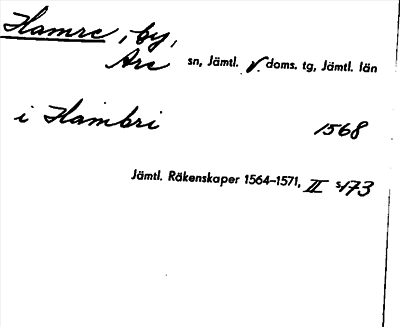 Hamre, by,
Are sn, Jämtl. v. doms. tg, Jämtl. län
i Hambri 1568
Jämtl. Räkenskaper 1564–1571, II s 173